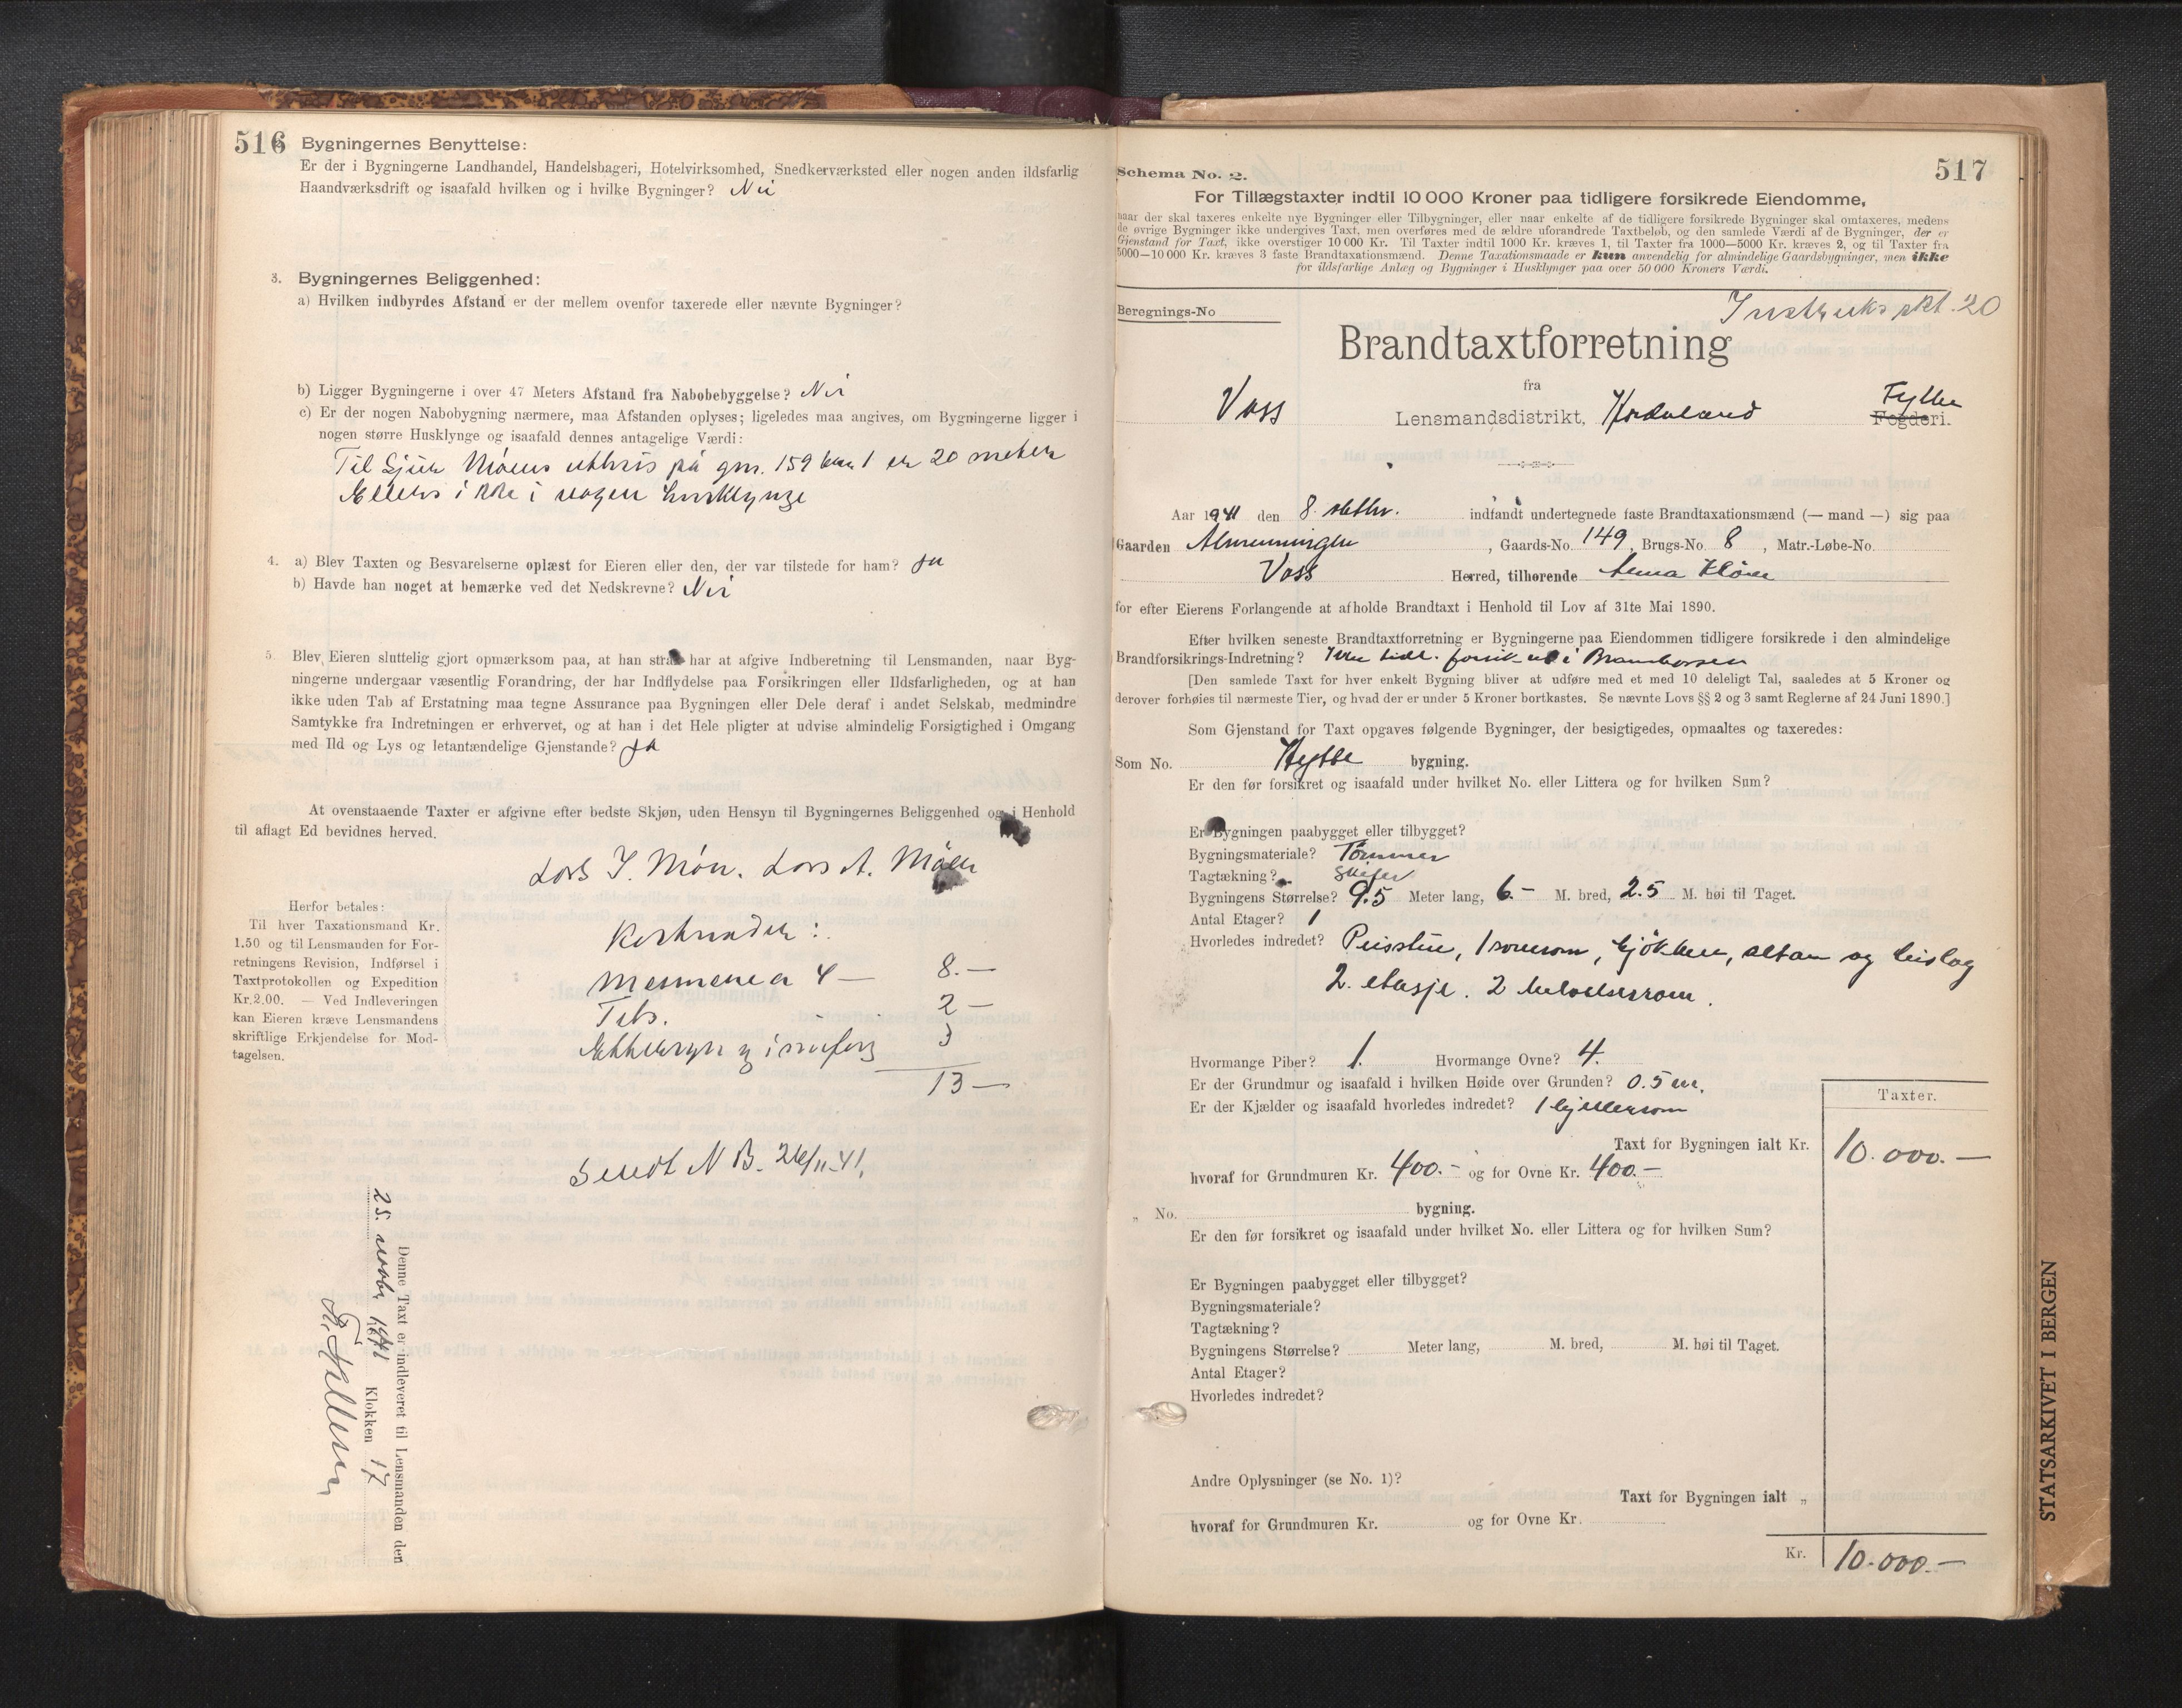 516
Bygningernes Benyttelse:
Er der i Bygningerne Landhandel, Handelsbageri, Hotelvirksomhed, Snedkerværksted eller nogen anden ildsfarlig
Haandværksdrift og isaafald hvilken og i hvilke Bygninger? Nei
3. Bygningernes Beliggenhed:
a) Hvilken indbyrdes Afstand er der mellem ovenfor taxerede eller nævnte Bygninger?
b) Ligger Bygningerne i over 47 Meters Afstand fra Nabobebyggelse? Nei
c) Er der nogen Nabobygning nærmere, maa Afstanden oplyses; ligeledes maa angives, om Bygningerne ligger i
nogen større Husklynge og isaafald dennes antagelige Værdi:
Til Sjur Möens uthus på gnr. 159 bnr 1 er 20 meter
Ellers ikke i nogen husklynge
4. a) Blev Taxten og Besvarelserne oplæst for Eieren eller den, der var tilstede for ham? Ja
b) Havde han noget at bemærke ved det Nedskrevne? Nei
5. Blev Eieren sluttelig gjort opmærksom paa, at han strax har at afgive Indberetning til Lensmanden, naar Byg-
ningerne undergaar væsentlig Forandring, der har Indflydelse paa Forsikringen eller Ildsfarligheden, og at han
ikke uden Tab af Erstatning maa tegne Assurance paa Bygningen eller Dele deraf i andet Selskab, medmindre
Samtykke fra Indretningen er erhvervet, og at han i det Hele pligter at udvise almindelig Forsigtighed i Omgang
med Ild og Lys og letantændelige Gjenstande? Ja
At ovenstaaende Taxter er afgivne efter bedste Skjøn, uden Hensyn til Bygningernes Beliggenhed og i Henhold
til aflagt Ed bevidnes herved.
Lars I. Mön. Lars A. Möen
Herfor betales:
Til hver Taxationsmand Kr.
1.50 og til Lensmanden for For-
retningens Revision, Indførsel i
Taxtprotokollen og Expedition
Kr.2.00. — Ved Indleveringen
kan Eieren kræve Lensmandens
skriftlige Erkjendelse for Mod-
tagelsen.
Kostnader:
Mennene a 4 — 8.—
Tils. 2 —
Ettersyn og innføring 3
13 —
Sendt N B. 26/11-41.
Denne Taxt er indleveret til Lensmanden den
25. novbr 1941 Klokken 17
517
Schema No. 2.
For Tillægstaxter indtil 10 000 Kroner paa tidligere forsikrede Eiendomme,
naar der skal taxeres enkelte nye Bygninger eller Tilbygninger, eller naar enkelte af de tidligere forsikrede Bygninger skal omtaxeres, medens
de øvrige Bygninger ikke undergives Taxt, men overføres med de ældre uforandrede Taxtbeløb, og den samlede Værdi af de Bygninger, der er
Gjenstand for Taxt, ikke overstiger 10 000 Kr. Til Taxter indtil 1000 Kr. kræves 1, til Taxter fra 1000—5000 Kr. kræves 2, og til Taxter fra
5000—10 000 Kr. kræves 3 faste Brandtaxationsmænd. Denne Taxationsmaade er kun anvendelig for almindelige Gaardsbygninger, men ikke
for ildsfarlige Anlæg og Bygninger i Husklynger paa over 50 000 Kroners Værdi.
Instruks pkt. 20
Beregnings-No
Brandtaxtforretning
fra
Voss Lensmandsdistrikt, Hordaland Fylke
Fogderi.
Aar 1941 den 8. oktbr. indfandt undertegnede faste Brandtaxationsmænd (— mand —) sig paa
Gaarden Almenningen, Gaards-No. 149, Brugs-No. 8, Matr.-Løbe-No.
Voss Herred, tilhørende Anna Kløve
for efter Eierens Forlangende at afholde Brandtaxt i Henhold til Lov af 31te Mai 1890.
Efter hvilken seneste Brandtaxtforretning er Bygningerne paa Eiendommen tidligere forsikrede i den almindelige
Brandforsikrings-Indretning? Ikke tidl. forsikret i Brannkassen
[Den samlede Taxt for hver enkelt Bygning bliver at udføre med et med 10 deleligt Tal, saaledes at 5 Kroner og
derover forhøies til nærmeste Tier, og hvad der er under 5 Kroner bortkastes. Se nævnte Lovs §§ 2 og 3 samt Reglerne af 24 Juni 1890.]
Som Gjenstand for Taxt opgaves følgende Bygninger, der besigtigedes, opmaaltes og taxeredes:
Som No. Hytte bygning.
Er den før forsikret og isaafald under hvilket No. eller Littera og for hvilken Sum?
Er Bygningen paabygget eller tilbygget?
Bygningsmateriale? Tömmer
Tagtækning? Skifer
Bygningens Størrelse? 9.5 Meter lang, 6.— M. bred, 2.5 M. høi til Taget.
Antal Etager? 1
Hvorledes indredet? Peisstue, 1 soverom, kjökken, altan og bislag
2. etasje. 2 beboelsesrom.
Hvormange Piber? 1. Hvormange Ovne? 4.
Er der Grundmur og isaafald i hvilken Høide over Grunden? 0.5 m.
Er der Kjælder og isaafald hvorledes indredet? 1 kjellerrom
Taxter.
Taxt for Bygningen ialt Kr. 10.000.—
hvoraf for Grundmuren Kr. 400.— og for Ovne Kr. 400.—
„ No. bygning.
Er den før forsikret og isaafald under hvilket No. eller Littera og for hvilken Sum?
Er Bygningen paabygget eller tilbygget?
Bygningsmateriale?
Tagtækning?
Bygningens Størrelse? Meter lang, M. bred, M. høi til Taget.
Antal Etager?
Hvorledes indredet?
Andre Oplysninger (se No. 1)?
Taxt for Bygningen ialt „
hvoraf for Grundmuren Kr. og for Ovne Kr.
Kr. 10.000.—
STATSARKIVET I BERGEN